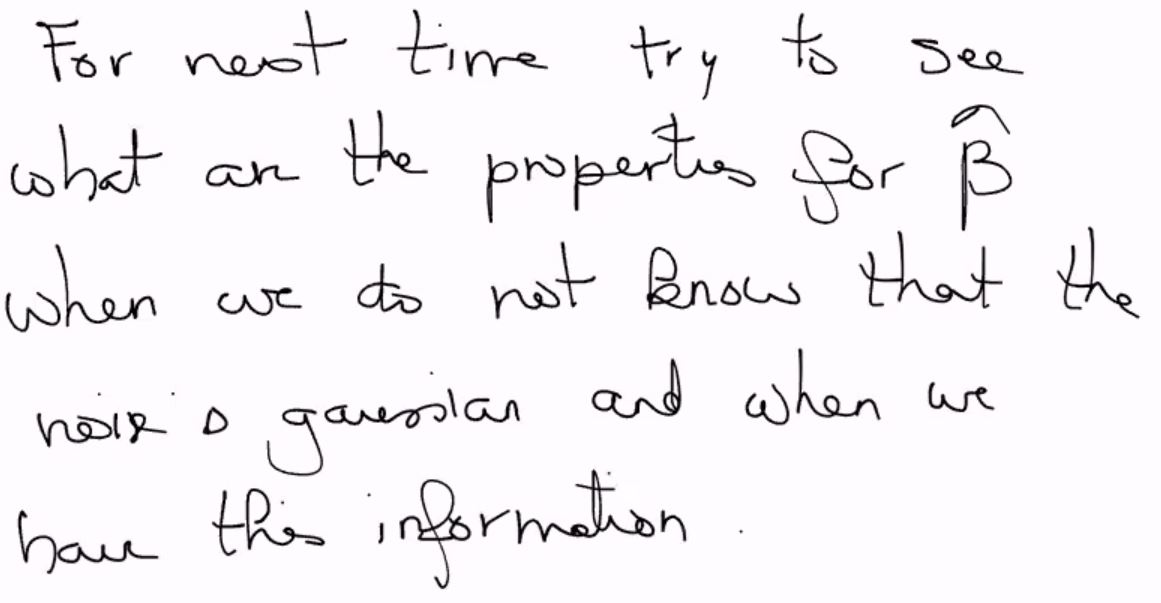 For next time try to see
what are the properties for β̂
when we do not know that the
noise is gaussian and when we
have this information.